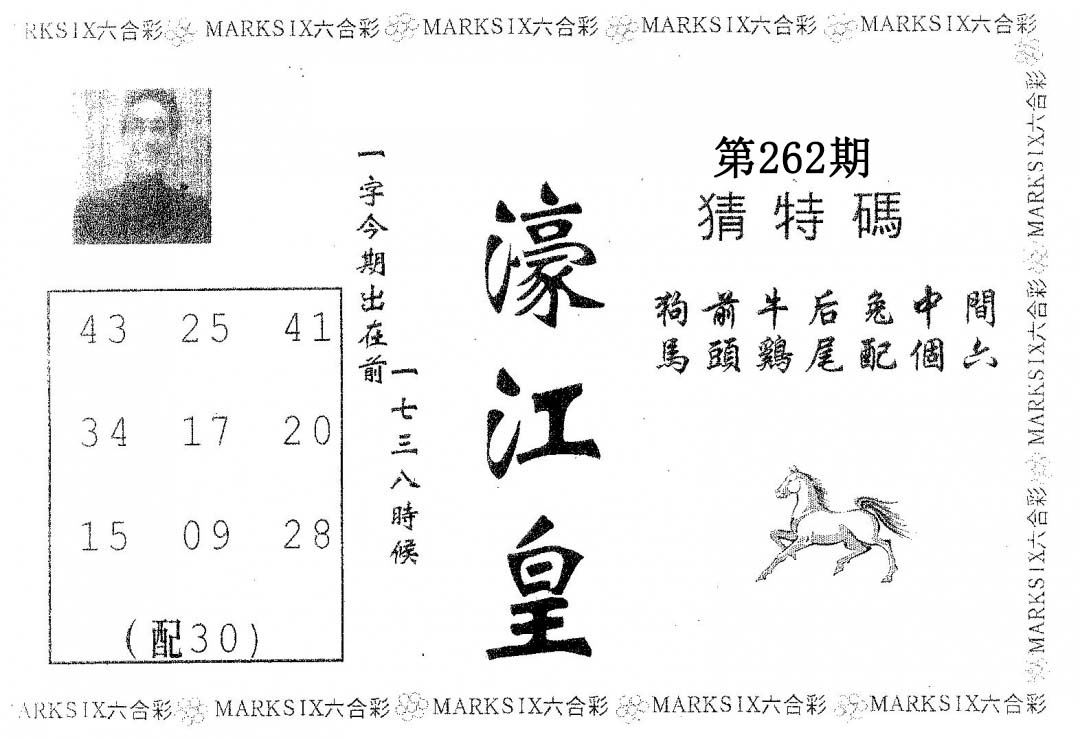 RKSIX六合彩 MARKSIX六合彩 MARKSIX六合彩 MARKSIX六合彩 MARKSIX六合彩
第262期
猜特碼
狗前牛后兔中間
馬頭鷄尾配個六
濠江皇
一字今期出在前
一七三八時候
43 25 41
34 17 20
15 09 28
(配30)
MARKSIX六合彩 MARKSIX六合彩 MARKSIX六合彩
ARKSIX六合彩 MARKSIX六合彩 MARKSIX六合彩 MARKSIX六合彩 MARKSIX六合彩